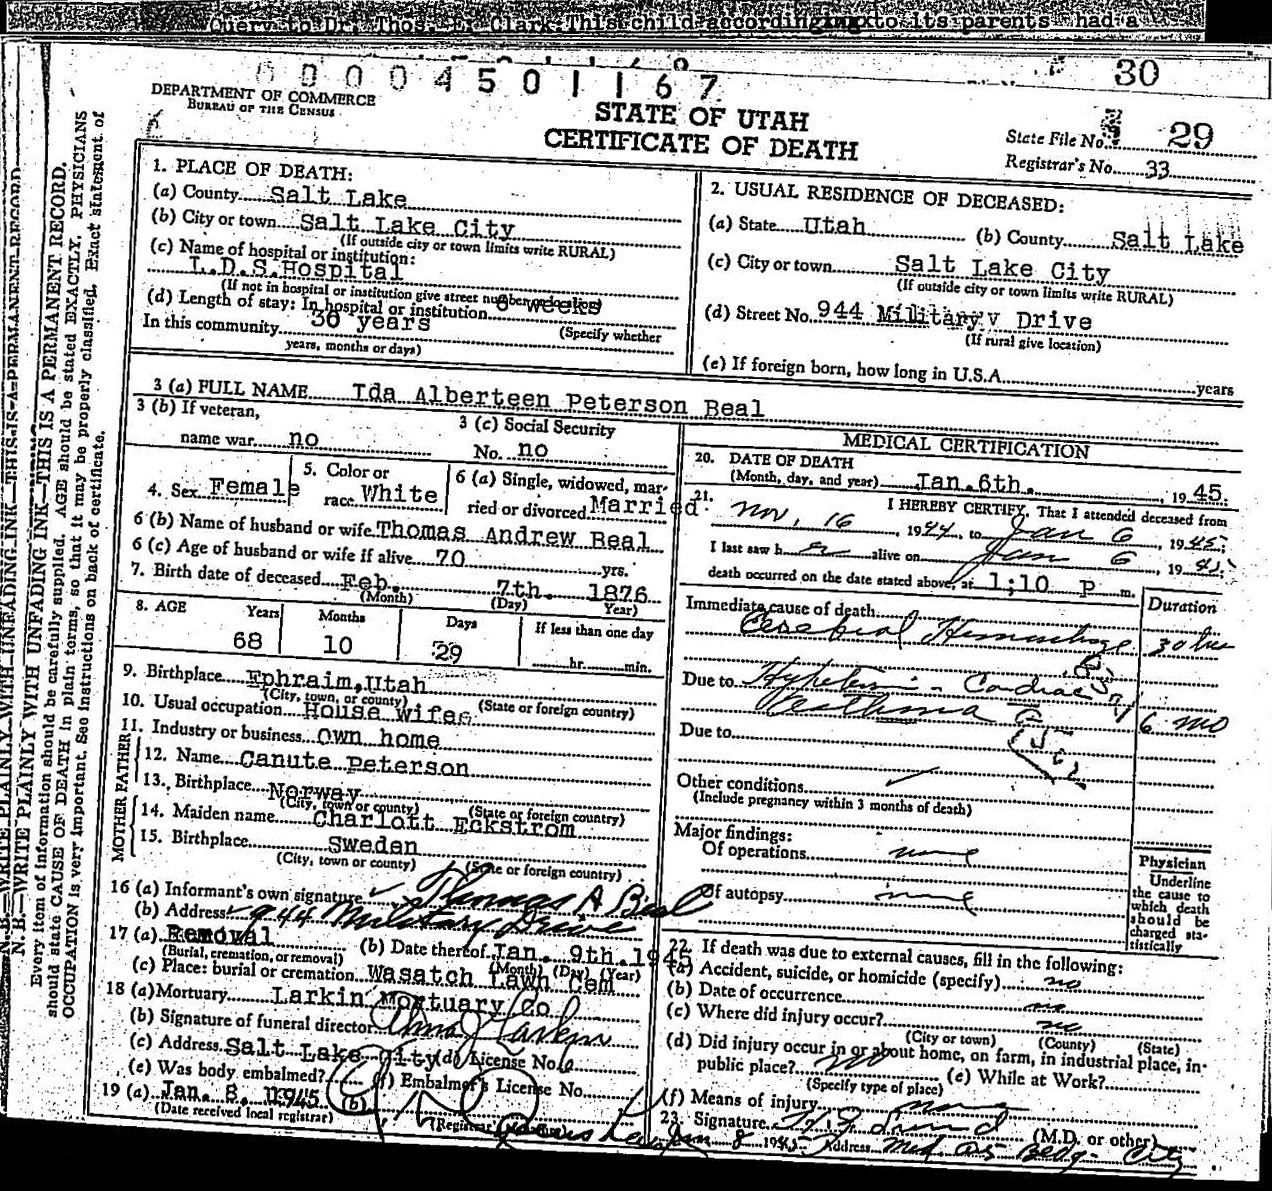 Query to Dr. Thos. E. Clark.This child according to its parents had a
0 0 0 0 4 5 0 1 1 6 7
30
DEPARTMENT OF COMMERCE
BUREAU OF THE CENSUS
STATE OF UTAH
CERTIFICATE OF DEATH
State File No. 29
Registrar's No. 33
N. B.—WRITE PLAINLY WITH UNFADING INK—THIS IS A PERMANENT RECORD.
N. B.—WRITE PLAINLY WITH UNFADING INK—THIS IS A PERMANENT RECORD.
Every item of information should be carefully supplied. AGE should be stated EXACTLY. PHYSICIANS
should state CAUSE OF DEATH in plain terms, so that it may be properly classified. Exact statement of
OCCUPATION is very important. See instructions on back of certificate.
1. PLACE OF DEATH:
(a) County Salt Lake
(b) City or town Salt Lake City
(If outside city or town limits write RURAL)
(c) Name of hospital or institution:
L.D.S.Hospital
(If not in hospital or institution give street number or location)
(d) Length of stay: In hospital or institution 6 weeks
(Specify whether
In this community 36 years
years, months or days)
2. USUAL RESIDENCE OF DECEASED:
(a) State Utah (b) County Salt Lake
(c) City or town Salt Lake City
(If outside city or town limits write RURAL)
(d) Street No. 944 Military Drive
(If rural give location)
(e) If foreign born, how long in U.S.A. years
3 (a) FULL NAME Ida Alberteen Peterson Beal
3 (b) If veteran,
name war no
3 (c) Social Security
No. no
4. Sex Female
5. Color or
race White
6 (a) Single, widowed, mar-
ried or divorced Married
6 (b) Name of husband or wife Thomas Andrew Beal
6 (c) Age of husband or wife if alive 70 yrs.
7. Birth date of deceased Feb. 7th. 1876
(Month) (Day) (Year)
8. AGE Years Months Days If less than one day
68 10 29 hr. min.
9. Birthplace Ephraim,Utah
(City, town, or county) (State or foreign country)
10. Usual occupation House wife
11. Industry or business Own home
FATHER
12. Name Canute Peterson
13. Birthplace Norway
(City, town or county) (State or foreign country)
MOTHER
14. Maiden name Charlott Eckstrom
15. Birthplace Sweden
(City, town or county) (State or foreign country)
16 (a) Informant's own signature Thomas A Beal
(b) Address 944 Military Drive
17 (a) Removal (b) Date thereof Jan. 9th.1945
(Burial, cremation, or removal) (Month) (Day) (Year)
(c) Place: burial or cremation Wasatch Lawn Cem
18 (a) Mortuary Larkin Mortuary Co
(b) Signature of funeral director Alma J Larkin
(c) Address Salt Lake City (d) License No. 6
(e) Was body embalmed? (f) Embalmer's License No.
19 (a) Jan. 8, 1945 (b)
(Date received local registrar) (Registrar's signature)
MEDICAL CERTIFICATION
20. DATE OF DEATH
(Month, day, and year) Jan.6th. , 1945.
21. I HEREBY CERTIFY, That I attended deceased from
Nov, 16 , 1944, to Jan 6 , 1945;
I last saw h er alive on Jan 6 , 1945;
death occurred on the date stated above, at 1;10 P m.
Duration
Immediate cause of death
Cerebral Hemorrhage 30 hrs
Due to Hypertension - Cardiac
Asthma 6 mo
Due to
Other conditions
(Include pregnancy within 3 months of death)
Major findings:
Of operations none
Of autopsy none
Physician
Underline
the cause to
which death
should be
charged sta-
tistically
22. If death was due to external causes, fill in the following:
(a) Accident, suicide, or homicide (specify) no
(b) Date of occurrence no
(c) Where did injury occur? no
(City or town) (County) (State)
(d) Did injury occur in or about home, on farm, in industrial place, in-
public place? no (e) While at Work?
(Specify type of place)
(f) Means of injury none
23. Signature (M.D. or other)
Jan 8 1945 Address Med. Arts Bldg- City